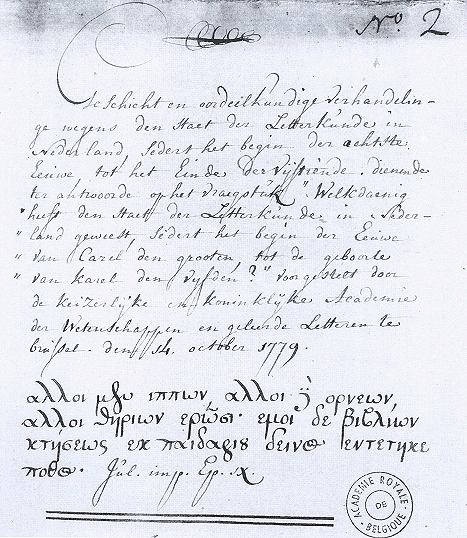 Nº 2
Geschicht en oordeilkundige verhandelin-
ge wegens den Staet der Letterkunde in
Nederland, sedert het begin der achtste
Eeuwe tot het Einde der vijfthiende. dienende
ter antwoorde op het vraagstuk "Welkdaenig
"heeft den Staet der Letterkunde in Neder-
"land geweest, sedert het begin der Eeuwe
"van Carel den grooten, tot de geboorte
"van Karel den vyfden?" voorgestelt door
de Keizerlijke en koninklijke Academie
der Wetenschappen en geleerde Letteren te
brussel. den 14. october 1779.
αλλοι μεν ιππων, αλλοι δε ορνεων,
αλλοι θηριων ερωσι· εμοι δε βιβλιων
κτησεως εκ παιδαριου δεινος εντετηκε
ποθος. Jul. imp. Ep. IX.
ACADEMIE ROYALE
DE
BELGIQUE